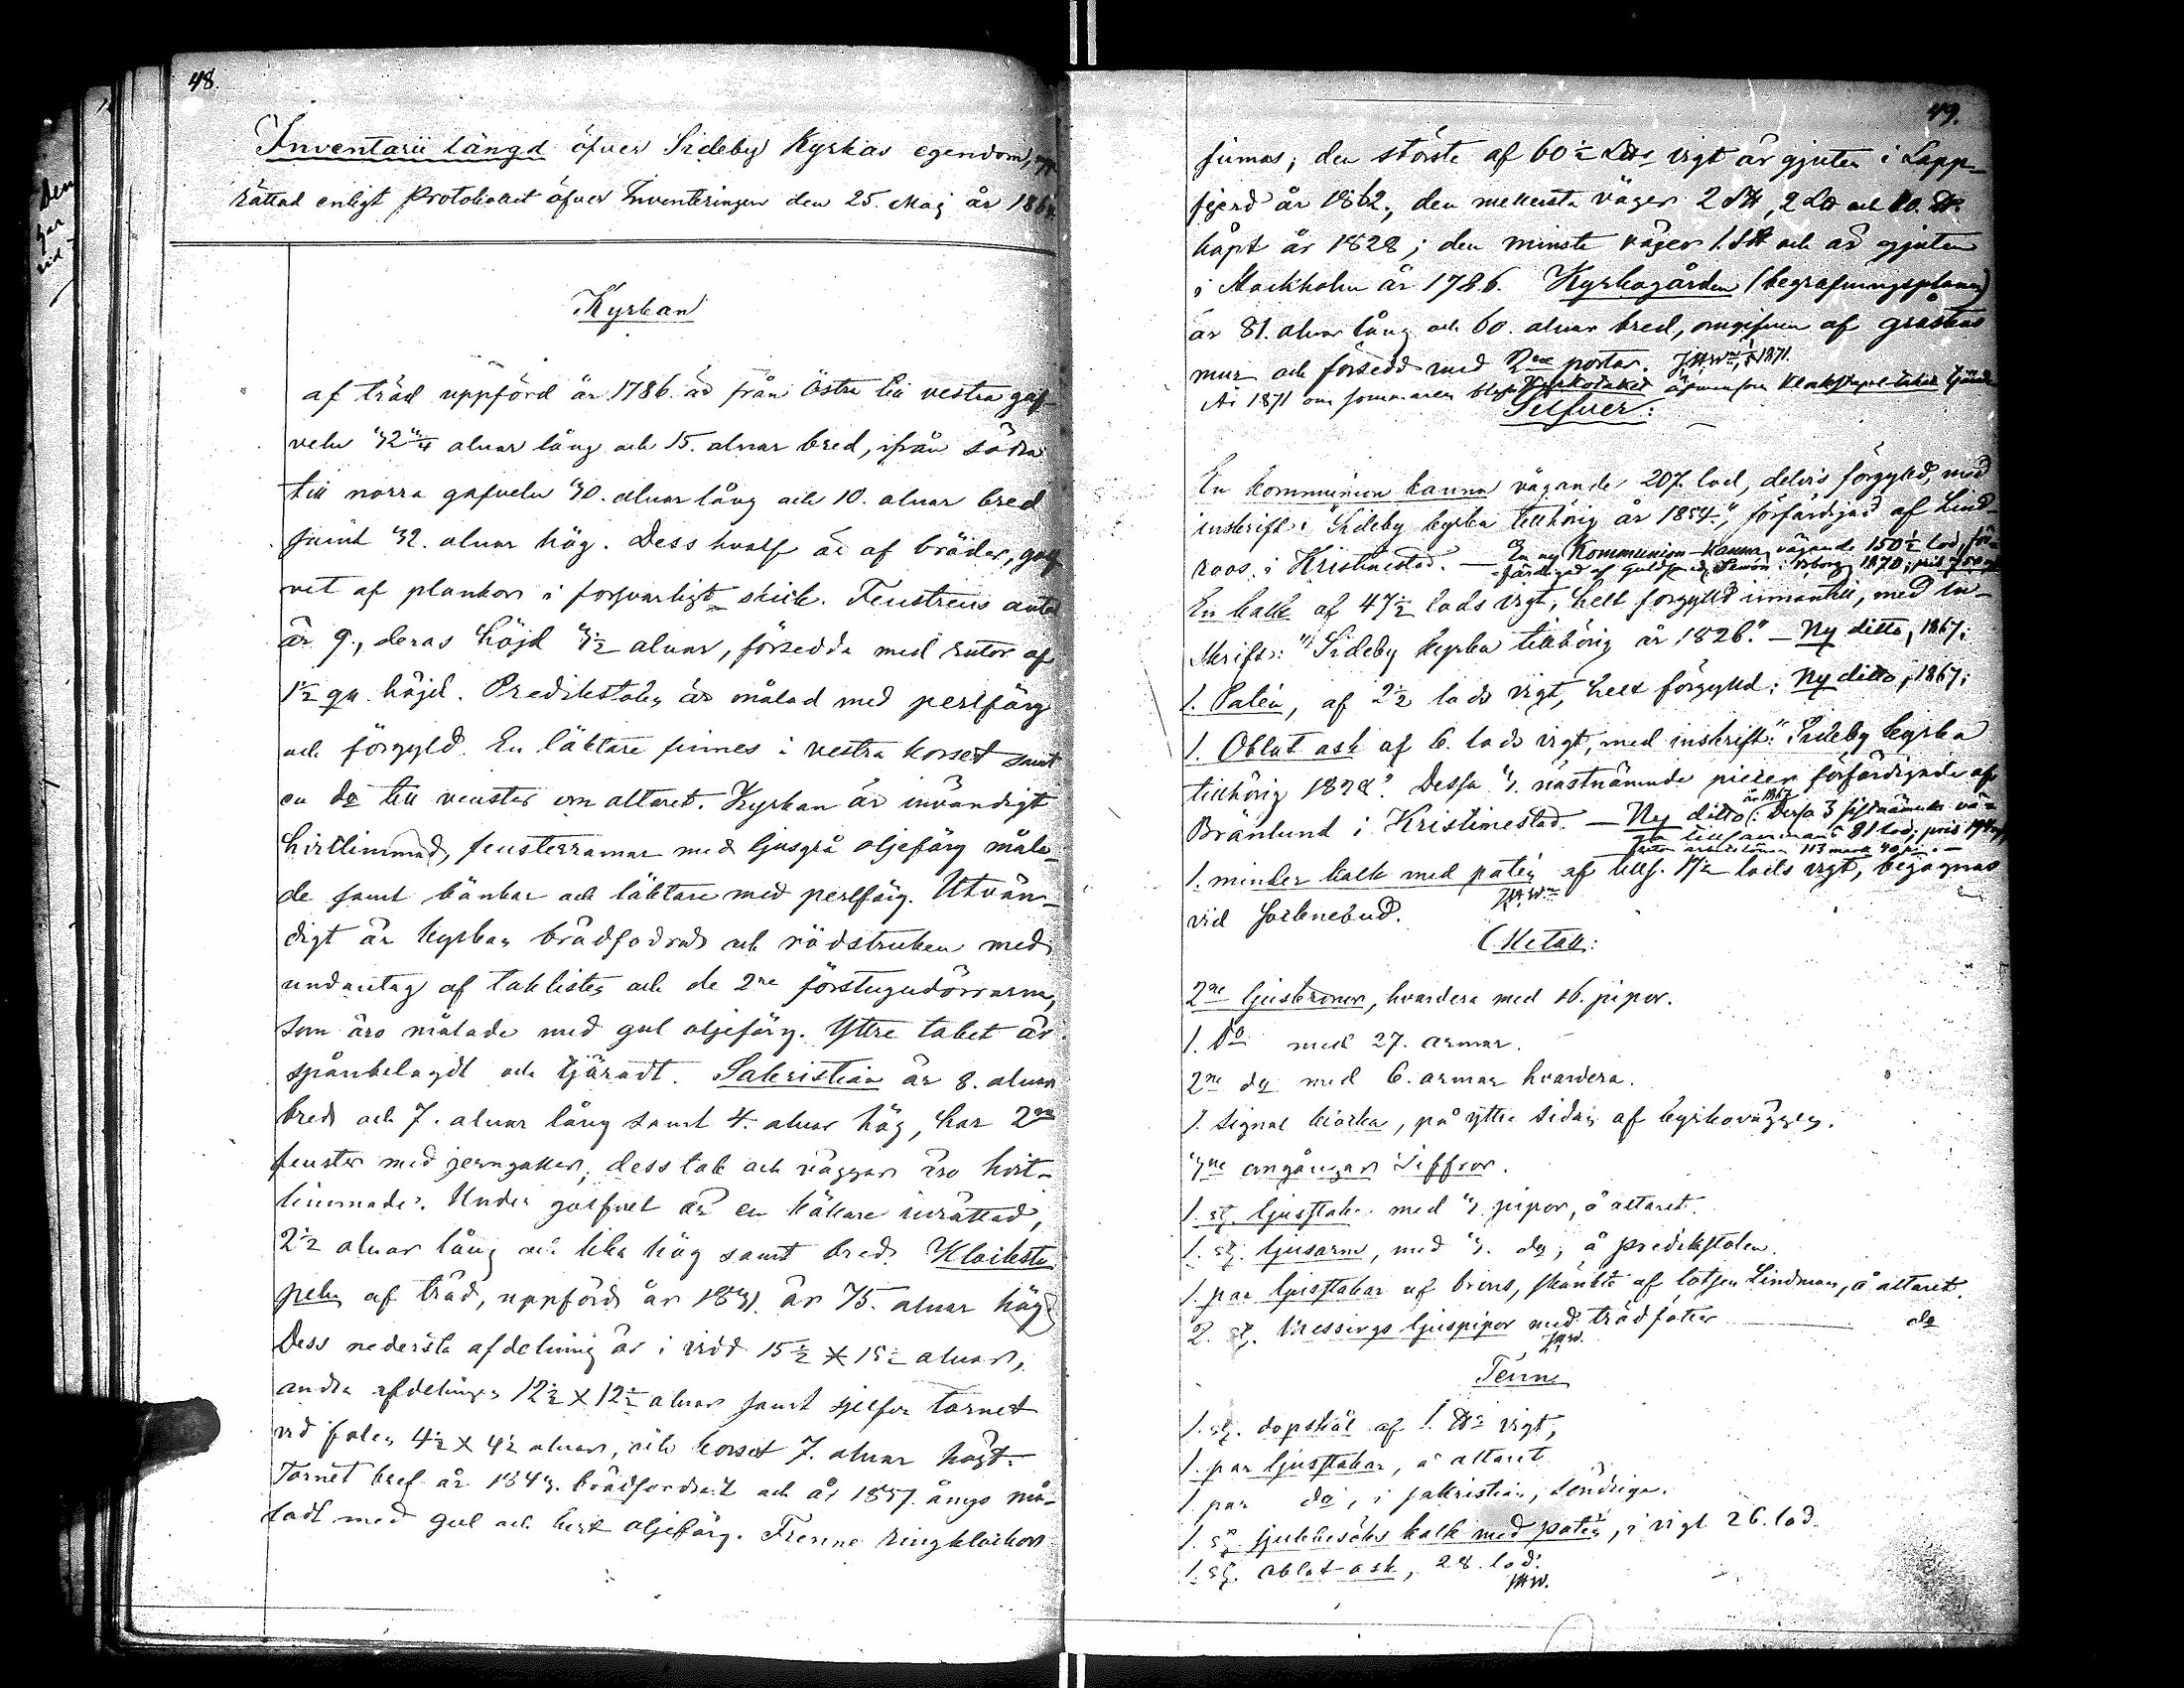 48.
Inventarii längd öfver Sideby Kyrkas egendom, upp-
rättad enligt Protokollet öfver Inventeringen den 25. Maj år 1864.
Kyrkan
af träd uppförd år 1786. är från östra till vestra gaf-
veln 32 3/4 alnar lång och 15. alnar bred, ifrån södra
till norra gafveln 30. alnar lång och 10. alnar bred
samt 32. alnar hög. Dess hvalf är af bräder, golf-
vet af plankor i försvarligt skick. Fenstrens antal
är 9., deras höjd 3½ alnar, försedda med rutor af
1½ qu. höjd. Predikstolen är målad med perlfärg
och förgyld. En läktare finnes i vestra korset samt
en do till venster om altaret. Kyrkan är invändigt
hvitlimmad, fensterramar med ljusgrå oljefärg måla-
de samt bänkar och läktare med perlfärg. Utvän-
digt är kyrkan brädfodrad och rödstruken med
undantag af taklisten och de 2ne förstugudörrarna,
som äro målade med gul oljefärg. Yttre taket är
spånbelagdt och tjäradt. Sakristian är 8. alnar
bred och 7. alnar lång samt 4. alnar hög, har 2ne
fenster med jerngaller, dess tak och väggar äro hvit-
limmade. Under golfvet är en källare inrättad,
2½ alnar lång och lika hög samt bred. Klocksta-
peln af träd, uppförd år 1831. är 75. alnar hög.
Dess nedersta afdelning är i vidd 15½ X 15½ alnar,
andra afdelningen 12½ X 12½ alnar samt sjelfva tornet
vid foten 4½ X 4½ alnar, och korset 7. alnar högt.
Tornet blef år 1843. brädfordradt och år 1857. ånyo må-
ladt med gul och hvit oljefärg. Trenne ringklockor
49.
finnas; den störste af 60½ Lds vigt är gjuten i Lapp-
fjerd år 1862., den mellersta väger 2 S℔, 2 L℔ och 10. ℔.
köpt år 1828; den minste väger 1. S℔ och är gjuten
i Stockholm år 1786. Kyrkogården (begrafningsplanen)
är 81. alnar lång och 60. alnar bred, omgifven af gråstens
mur och försedd med 2ne portar. 1871.
År 1871 om sommaren blef Kyrkotaket äfvensom Klockstapel-taket tjärade
Silfver:
En kommunion kanna vägande 207. lod, delvis förgylld, med
inskrift: "Sideby kyrka tillhörig år 1854.", förfärdigad af Lind-
roos i Kristinestad. — En ny Kommunion-kanna vägande 150½ lod, för-
färdigad af Guldsmed Simon i Wiborg 1870;
En kalk af 47½ lods vigt, helt förgylld innantill, med in-
skrift: "Sideby kyrka tillhörig år 1826." — Ny ditto, 1867;
1. Patén, af 2½ lods vigt, helt förgylld; Ny ditto, 1867;
1. Oblat ask af 6. lods vigt, med inskrift: "Sideby kyrka
tillhörig 1828". Dessa 3. nästnämnde piecer förfärdigade af
Bränlund i Kristinestad. — Ny ditto år 1867: Dessa 3 sistnämnde vä-
ga tillsammans 81 lod; pris
arbetslönen 113 mark 40 pi. —
1. minder kalk med patén af tills. 17½ lods vigt, begagnas
vid sockenbud.
Metall:
2ne ljuskronor, hvardera med 16. pipor.
1. Do med 27. armar.
2ne do med 6. armar hvardera.
1. signal klocka, på yttre sidan af kyrkoväggen.
3ne omgångar Siffror.
1. st. ljusstake med 3. pipor, å altaret.
1. st. ljusarm, med 3. do, å predikstolen.
1. par ljusstakar af brons, skänkte af lotsen Lindman, å altaret.
2. st. Messings ljuspipor med trädfötter — do
Tenn
1. st. dopskål af 1. ℔s vigt,
1. par ljusstakar, å altaret
1. par do, i sakristian, söndriga.
1. st. sjukbesöks kalk med patén, i vigt 26. lod.
1. st. oblat ask, 28. lod.